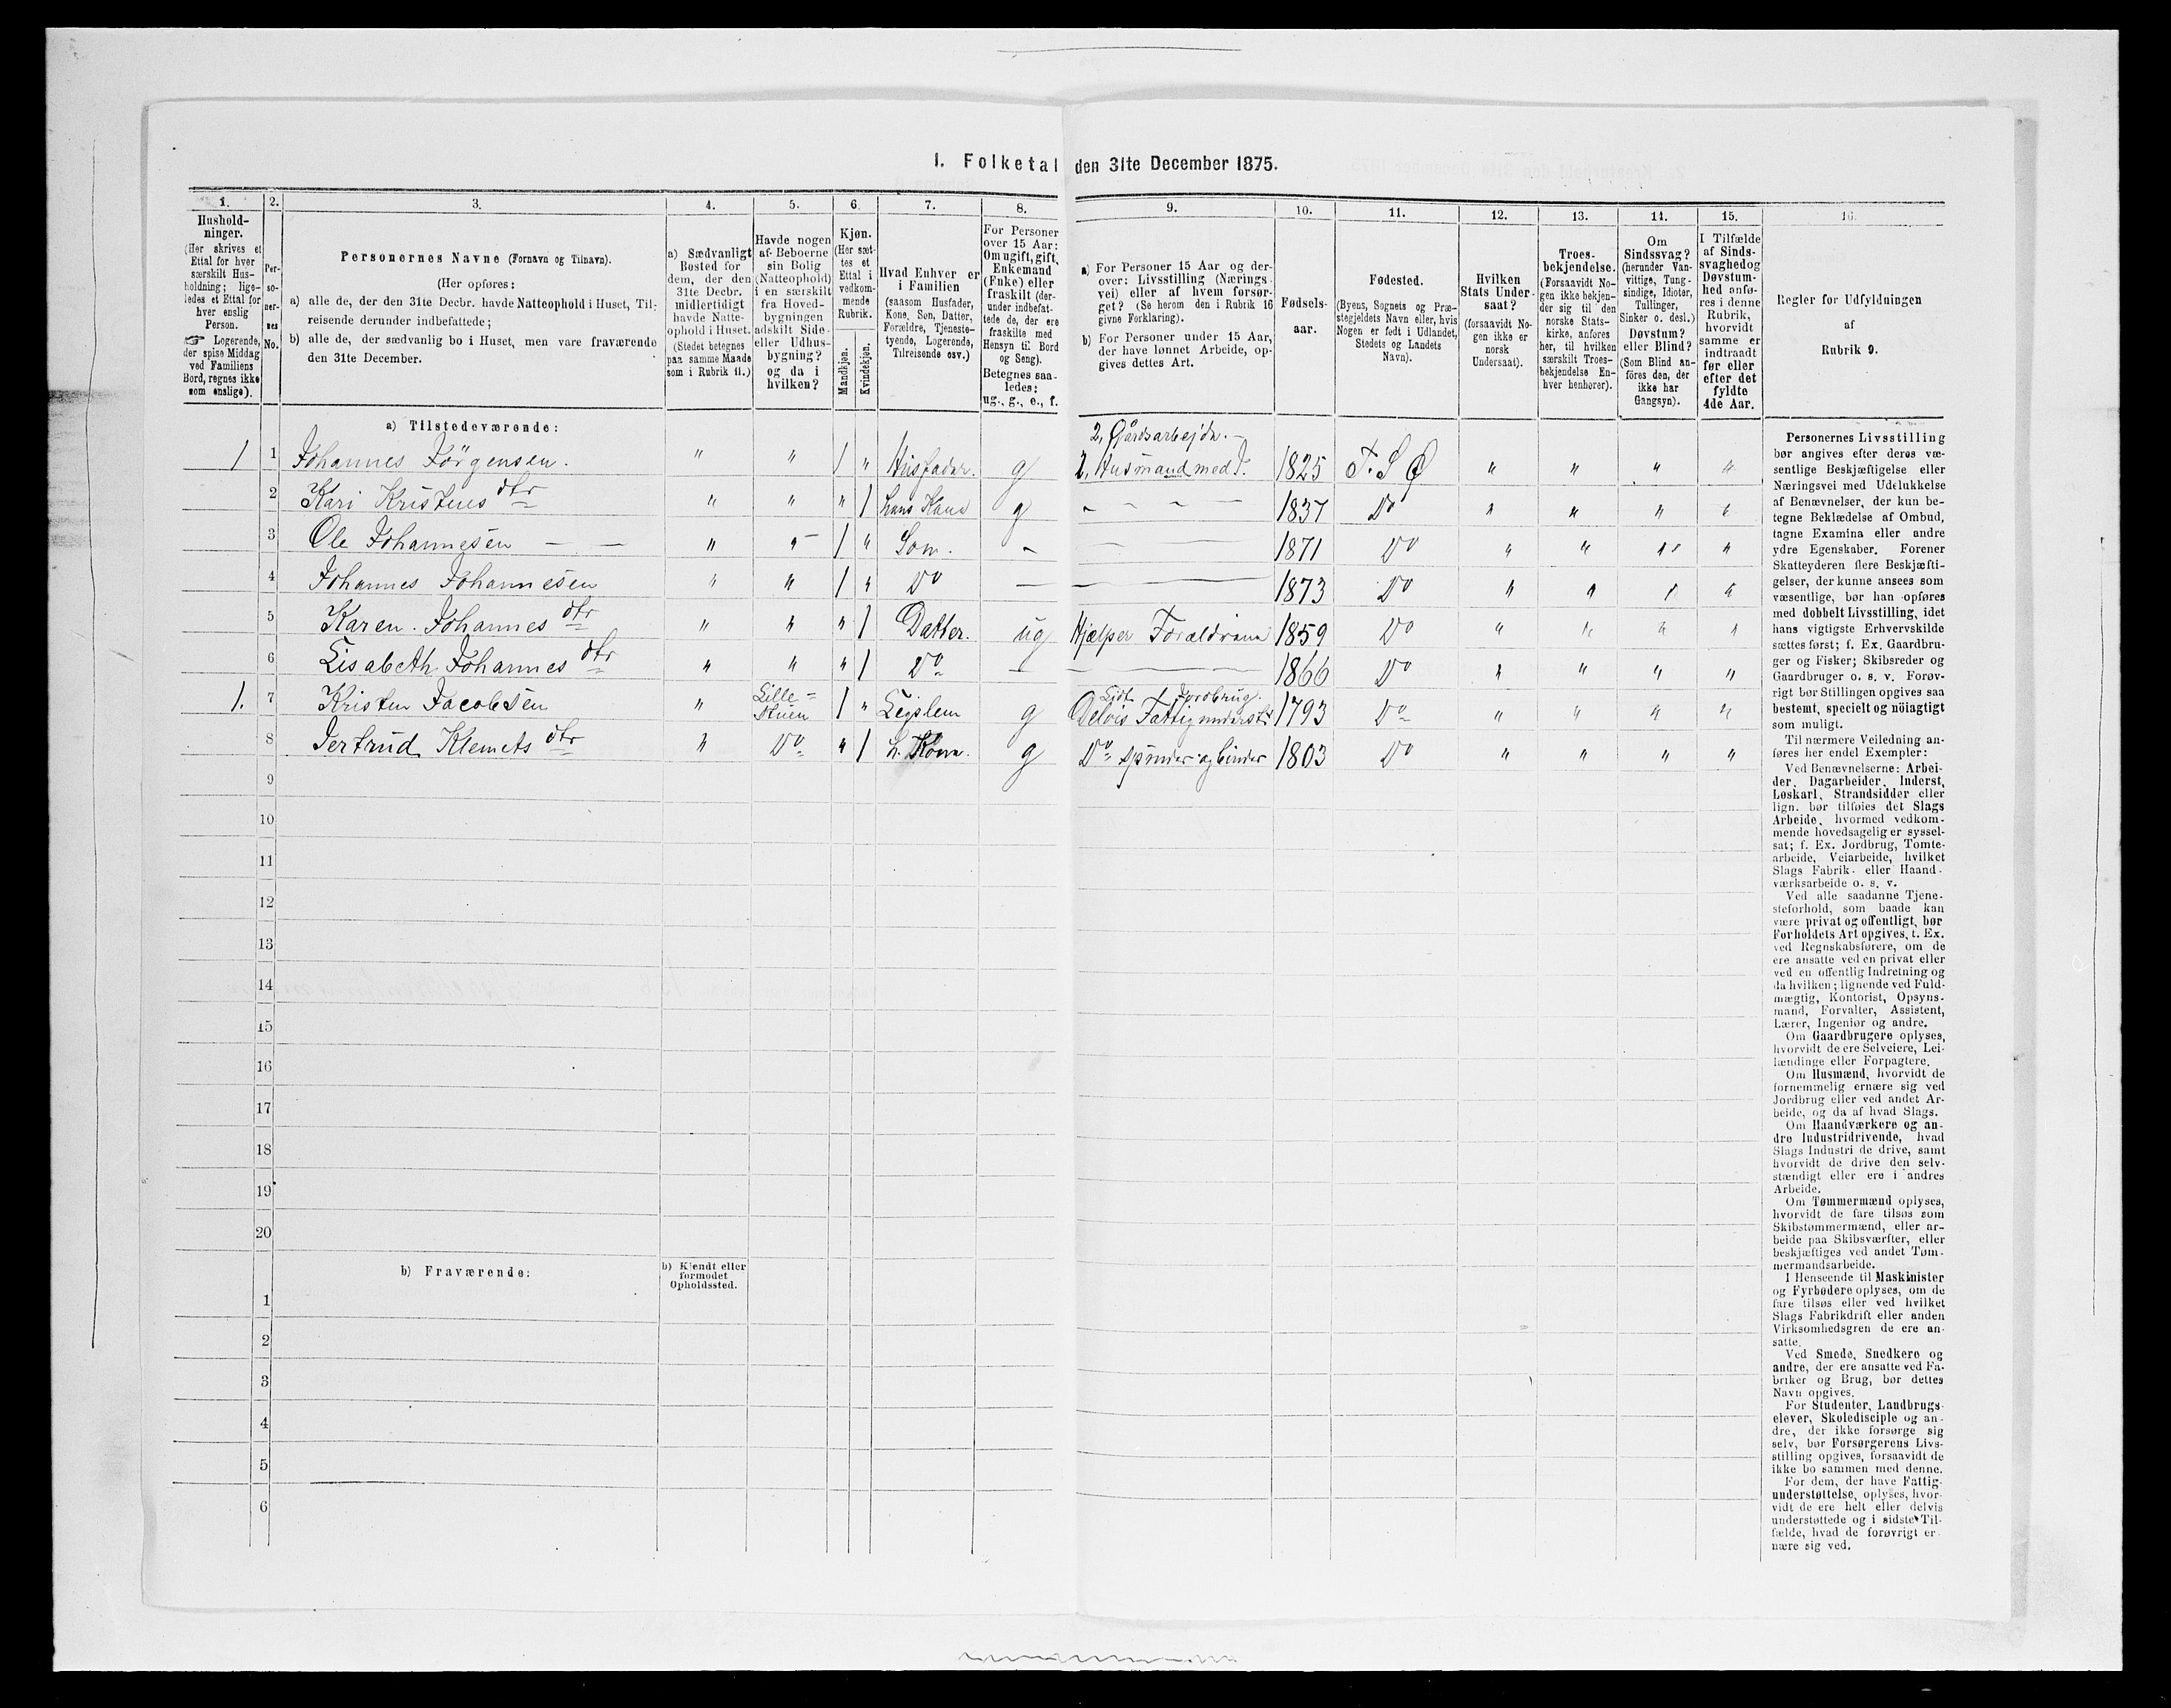 1. Folketal den 31te December 1875.
1.
2.
3.
4.
5.
6.
7.
8.
9.
10.
11.
12.
13.
14.
15.
16.
Hushold-
ninger.
(Her skrives et
Ettal for hver
særskilt Hus-
holdning; lige-
ledes et Ettal for
hver enslig
Person.
☞ Logerende,
der spise Middag
ved Familiens
Bord, regnes ikke
som enslige).
Per-
so-
ner-
nes
No.
Personernes Navne (Fornavn og Tilnavn).
(Her opføres:
a) alle de, der den 31te Decbr. havde Natteophold i Huset, Til-
reisende derunder indbefattede;
b) alle de, der sædvanlig bo i Huset, men vare fraværende
den 31te December.
a) Sædvanligt
Bosted for
dem, der den
31te Decbr.
midlertidigt
havde Natte-
ophold i Huset.
(Stedet betegnes
paa samme Maade
som i Rubrik 11.)
Havde nogen
af Beboerne
sin Bolig
(Natteophold)
i en særskilt
fra Hoved-
bygningen
adskilt Side-
eller Udhus-
bygning?
og da i
hvilken?
Kjøn.
(Her sæt-
tes et
Ettal i
vedkom-
mende
Rubrik.
Mandkjøn.
Kvindekjøn.
Hvad Enhver er
i Familien
(saasom Husfader,
Kone, Søn, Datter,
Forældre, Tjeneste-
tyende, Logerende,
Tilreisende osv.)
For Personer
over 15 Aar:
Om ugift, gift,
Enkemand
(Enke) eller
fraskilt (der-
under indbefat-
tede de, der ere
fraskilte med
Hensyn til Bord
og Seng).
Betegnes saa-
ledes:
ug., g., e., f.
a) For Personer 15 Aar og der-
over: Livsstilling (Nærings-
vei) eller af hvem forsør-
get? (Se herom den i Rubrik 16
givne Forklaring).
b) For Personer under 15 Aar,
der have lønnet Arbeide, op-
gives dettes Art.
Fødsels-
aar.
Fødested.
(Byens, Sognets og Præ-
stegjeldets Navn eller, hvis
Nogen er født i Udlandet,
Stedets og Landets
Navn).
Hvilken
Stats Under-
saat?
(forsaavidt No-
gen ikke er
norsk
Undersaat).
Troes-
bekjendelse.
(Forsaavidt No-
gen ikke bekjen-
der sig til den
norske Stats-
kirke, anføres
her, til hvilken
særskilt Troes-
bekjendelse En-
hver henhører).
Om
Sindssvag?
(herunder Van-
vittige, Tung-
sindige, Idioter,
Tullinger,
Sinker o. desl.)
Døvstum?
eller Blind?
(Som Blind an-
føres den, der
ikke har
Gangsyn).
I Tilfælde
af Sinds-
svaghed og
Døvstum-
hed anfø-
res i denne
Rubrik,
hvorvidt
samme er
indtraadt
før eller
efter det
fyldte
4de Aar.
Regler for Udfyldningen
af
Rubrik 9.
a) Tilstedeværende:
2, Gårdsarbejdr. –
1 1 Johannes Jörgensen. " " 1 " Husfader. g 1, Husmand med J. 1825 T. S Ø " " " "
2 Kari Kristens dtr " " " 1 hans Kone g – – – – 1837 Do " " " "
3 Ole Johannesen — — " " 1 " Søn. – — — 1871 Do " " " "
4 Johannes Johannesen " " 1 " Do — — 1873 Do " " " "
5 Karen. Johannes dtr " " " 1 Datter. ug Hjælper Forældrene 1859 Do " " " "
6 Lisabeth Johannes dtr " " " 1 Do — — 1866 Do " " " "
1. 7 Kristen Jacobsen " Lille- Stuen 1 " g Lidt Jordbrug. Delvis Fattigunderst. 1793 Do " " " "
8 Jertrud Klemets dtr " Do " 1 h. Kone. g Do spinder og binder 1803 Do " " " "
9
10
11
12
13
14
15
16
17
18
19
20
b) Fraværende:
b) Kjendt eller
formodet
Opholdssted.
1
2
3
4
5
6
Personernes Livsstilling
bør angives efter deres væ-
sentlige Beskjæftigelse eller
Næringsvei med Udelukkelse
af Benævnelser, der kun be-
tegne Beklædelse af Ombud,
tagne Examina eller andre
ydre Egenskaber. Forener
Skatteyderen flere Beskjæfti-
gelser, der kunne ansees som
væsentlige, bør han opføres
med dobbelt Livsstilling, idet
hans vigtigste Erhvervskilde
sættes først; f. Ex. Gaardbru-
ger og Fisker; Skibsreder og
Gaardbruger o. s. v. Forøv-
rigt bør Stillingen opgives saa
bestemt, specielt og nöiagtigt
som muligt.
Til nærmere Veiledning an-
føres her endel Exempler:
Ved Benævnelserne: Arbei-
der, Dagarbeider, Inderst,
Løskarl, Strandsidder eller
lign. bør tilføies det Slags
Arbeide, hvormed vedkom-
mende hovedsagelig er syssel-
sat; f. Ex. Jordbrug, Tomte-
arbeide, Veiarbeide, hvilket
Slags Fabrik- eller Haand-
værksarbeide o. s. v.
Ved alle saadanne Tjene-
steforhold, som baade kan
være privat og offentligt, bør
Forholdets Art opgives, t. Ex.
ved Regnskabsførere, om de
ere ansatte ved en privat eller
ved en offentlig Indretning og
da hvilken; lignende ved Fuld-
mægtig, Kontorist, Opsyns-
mand, Forvalter, Assistent,
Lærer, Ingeniør og andre.
Om Gaardbrugere oplyses,
hvorvidt de ere Selveiere, Lei-
lændinge eller Forpagtere.
Om Husmænd, hvorvidt de
fornemmelig ernære sig ved
Jordbrug eller ved andet Ar-
beide, og da af hvad Slags.
Om Haandværkere og an-
dre Industridrivende, hvad
Slags Industri de drive, samt
hvorvidt de drive den selv-
stændigt eller ere i andres
Arbeide.
Om Tømmermænd oplyses,
hvorvidt de fare tilsøs som
Skibstømmermænd, eller ar-
beide paa Skibsværfter, eller
beskjæftiges ved andet Tøm-
mermandsarbeide.
I Henseende til Maskinister
og Fyrbødere oplyses, om de
fare tilsøs eller ved hvilket
Slags Fabrikdrift eller anden
Virksomhedsgren de ere an-
satte.
Ved Smede, Snedkere og
andre, der ere ansatte ved Fa-
briker og Brug, bør dettes
Navn opgives.
For Studenter, Landbrugs-
elever, Skoledisciple og an-
dre, der ikke forsørge sig
selv, bør Forsørgerens Livs-
stilling opgives, forsaavidt de
ikke bo sammen med denne.
For dem, der have Fattig-
understøttelse, oplyses, hvor-
vidt de ere helt eller delvis
understøttede og i sidste Til-
fælde, hvad de forøvrigt er-
nære sig ved.